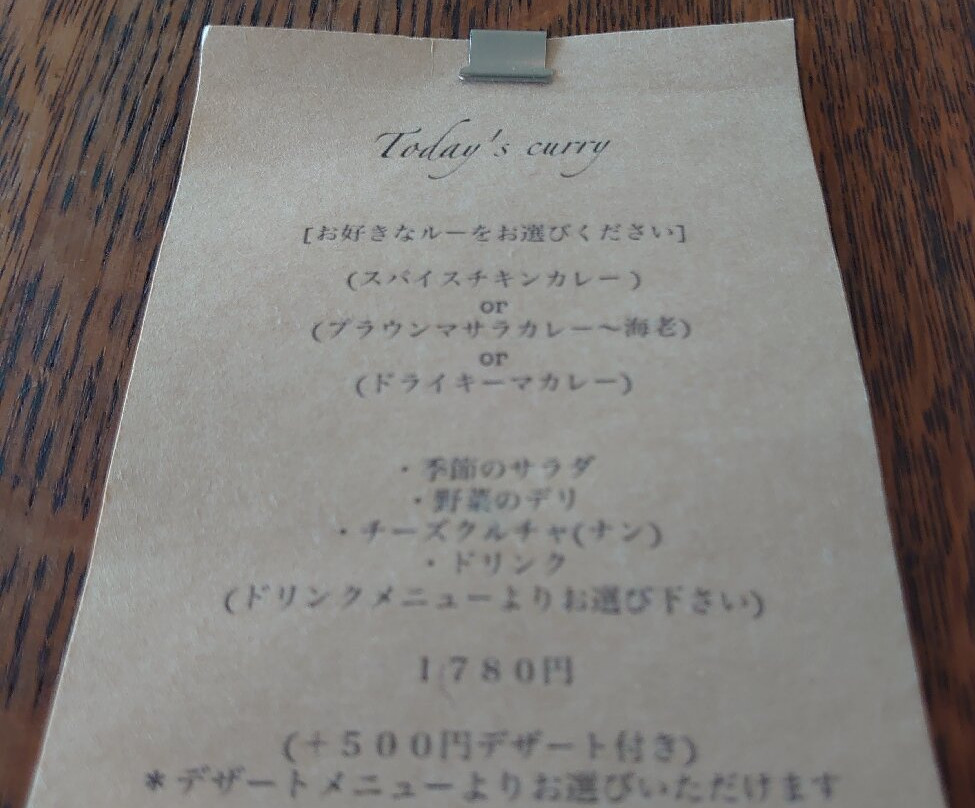 Today's curry
[お好きなルーをお選びください]
(スパイスチキンカレー )
or
(ブラウンマサラカレー～海老)
or
(ドライキーマカレー)
・季節のサラダ
・野菜のデリ
・チーズクルチャ(ナン)
・ドリンク
(ドリンクメニューよりお選び下さい)
１７８０円
(＋５００円デザート付き)
＊デザートメニューよりお選びいただけます